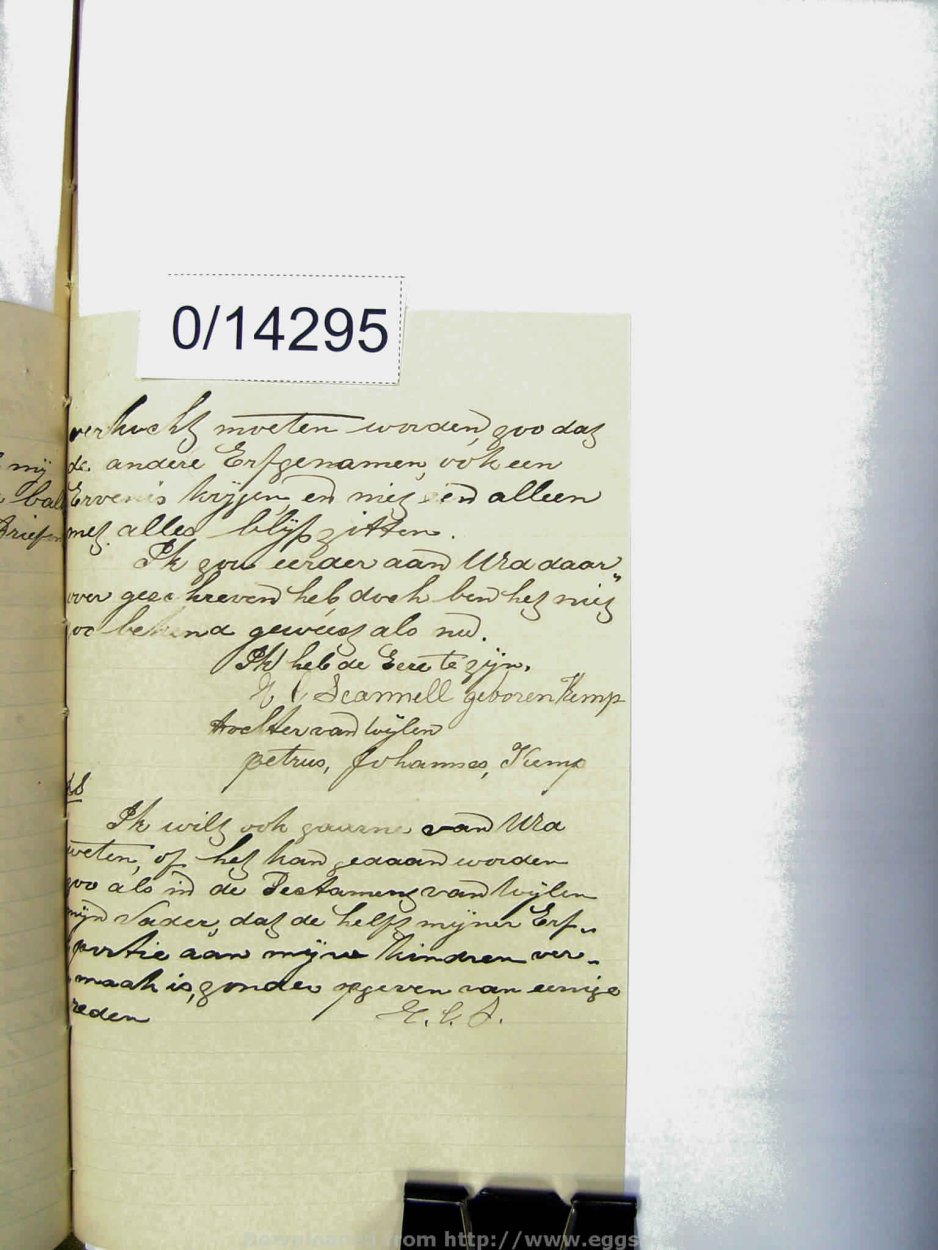 0/14295
verkocht moeten worden, zoo dat
de andere Erfgenamen, ook een
mij
Ervenis krijgen, en niet een alleen
met alles blijft zitten.
Ik zou eerder aan UEd daar
over geschreven heb, doch ben het niet
zoo bekend geweest als nu.
Ik heb de Eere te zijn.
E C Scannell geboren Kemp
Dochter van wijlen
petrus, Johannes, Kemp
PS
Ik wilt ook gaarne van UEd
weten, of het kan gedaan worden
zoo als in de Testament van wijlen
mijn Vader, dat de helft mijner Erf-
portie aan mijne Kindren ver-
maak is, zonder opgeven van eenige
reden E. C. S.
from http://www.eggs